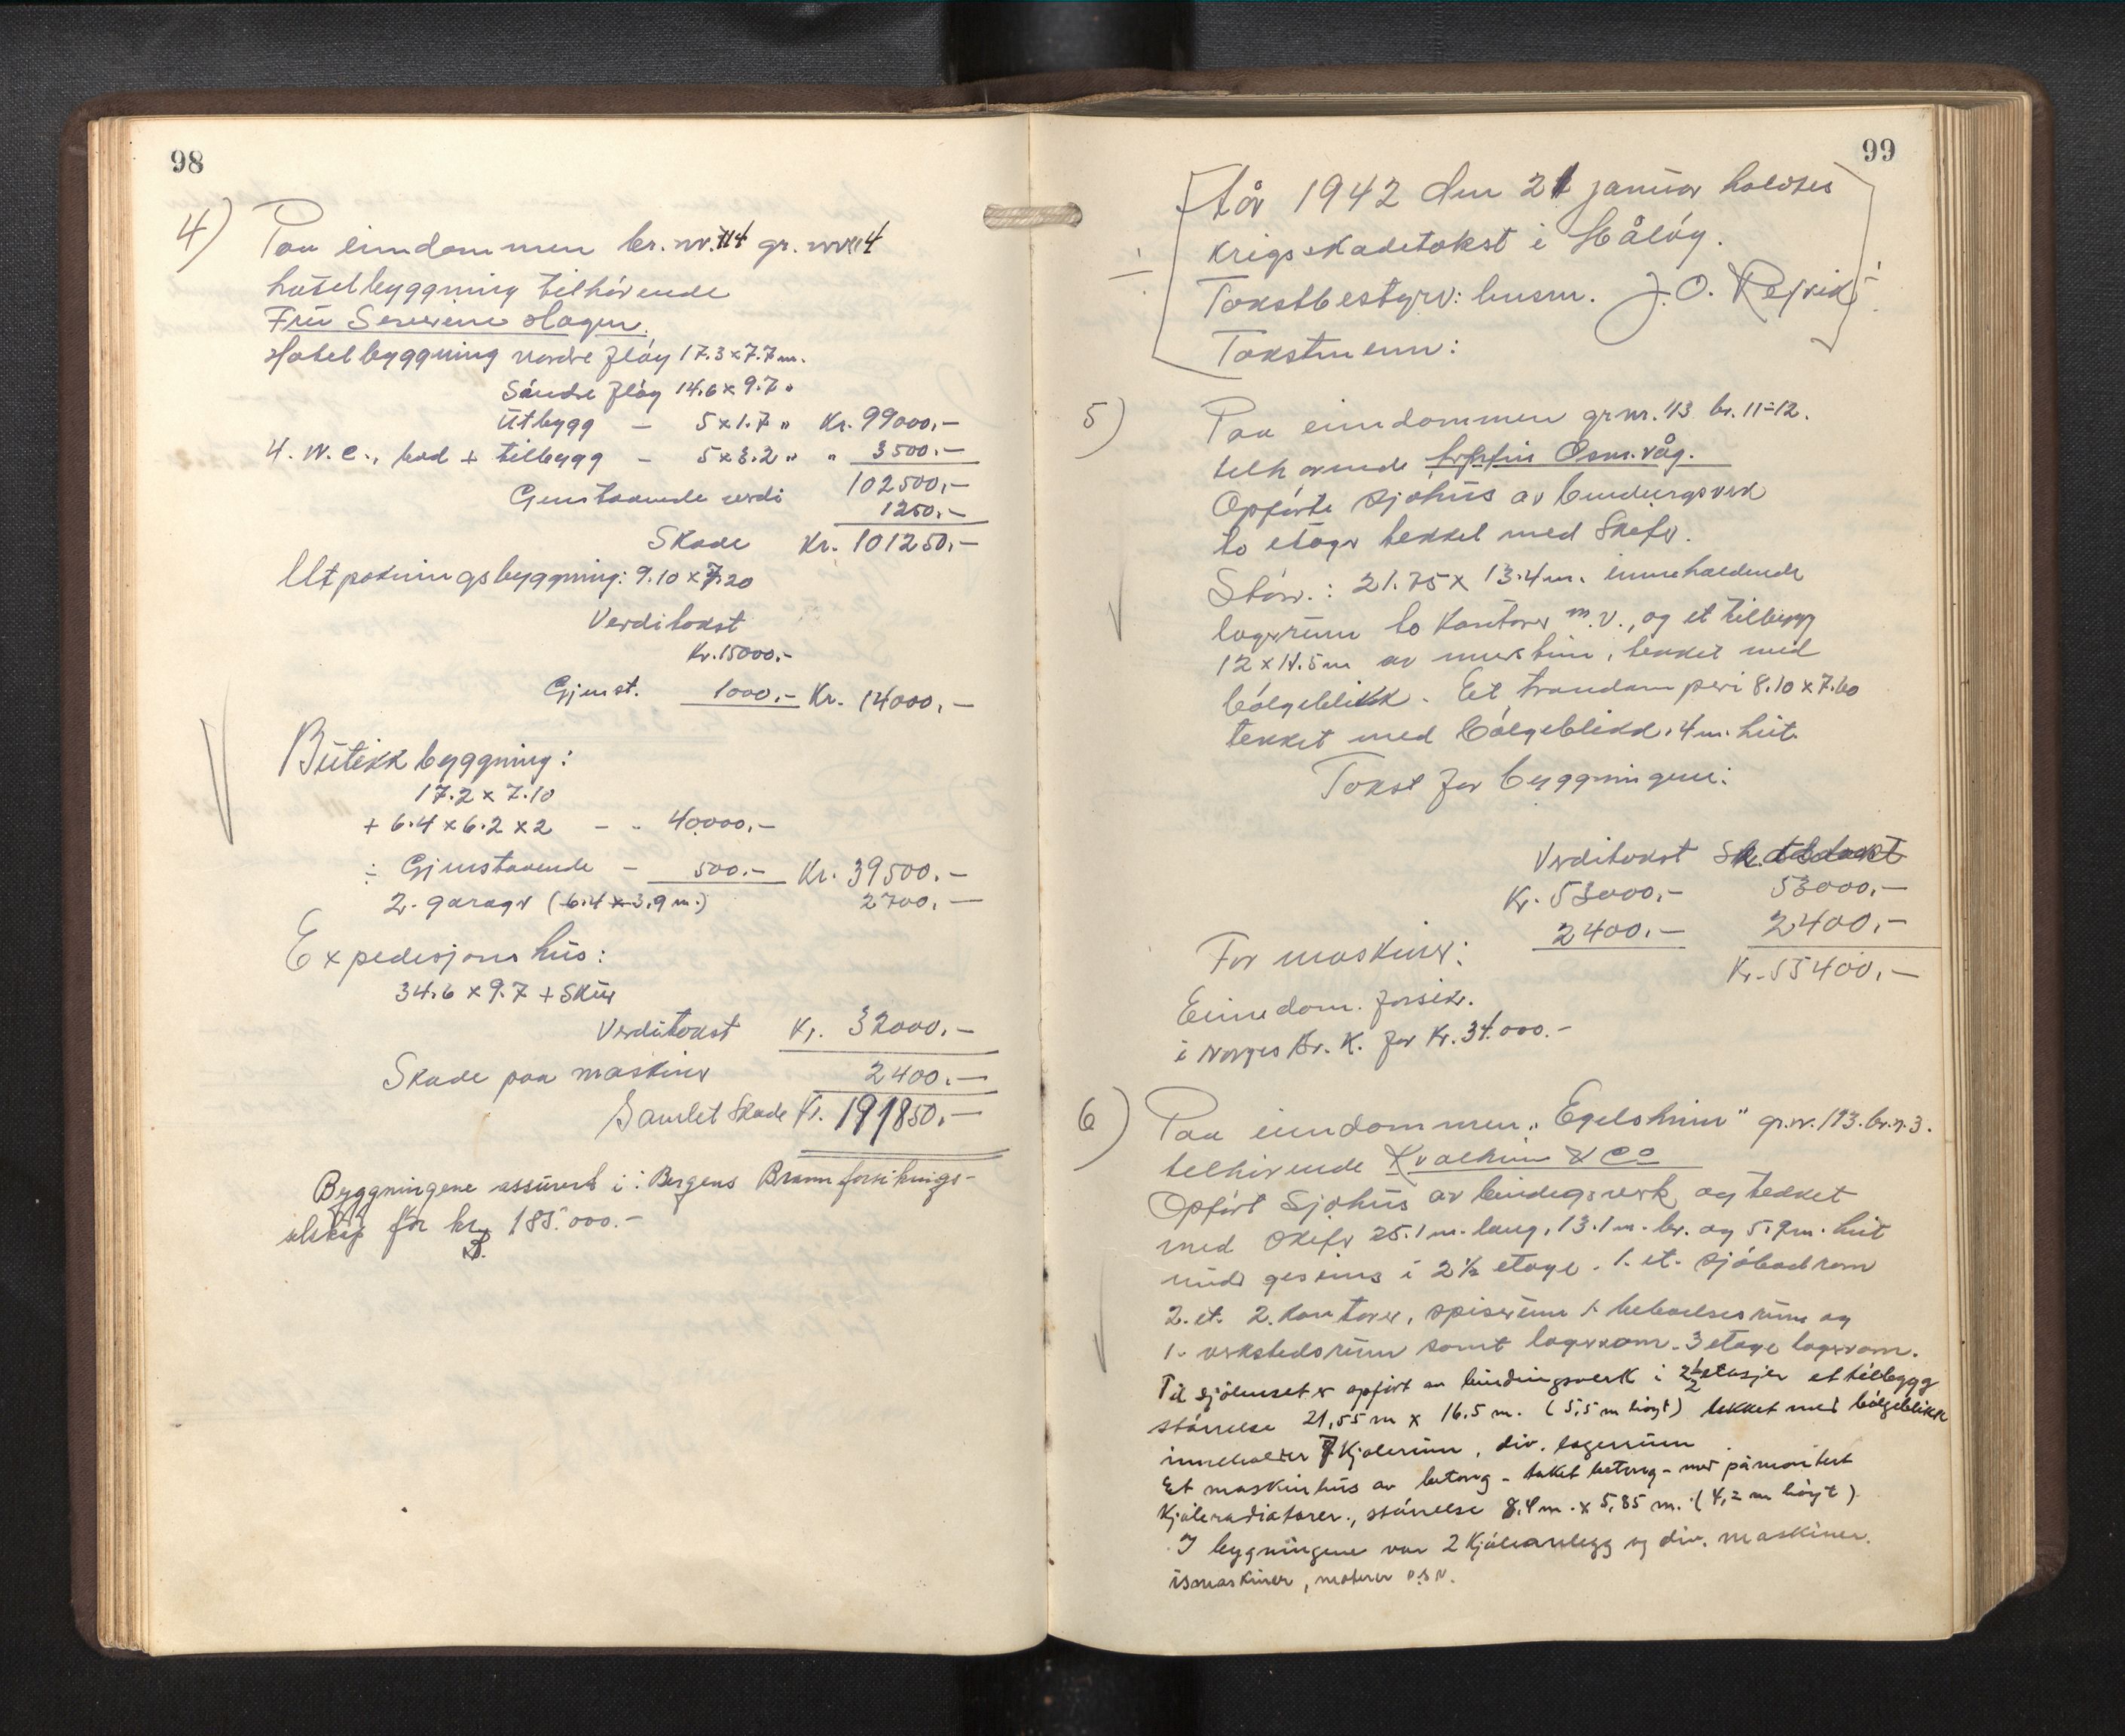 98
4) Paa eiendommen br. nr. 114 gr. nr. 114
hotelbyggning tilhörende
Fru Severine Hagen.
Hotelbyggning nordre flöy 17.3 x 7.7 m.
Söndre flöy 14.6 x 9.7 "
Utbygg - 5 x 1.7 " Kr. 99000,-
4. W.C., bod + tilbygg - 5 x 3.2 " " 3500.-
Genstaaende verdi 102500,-
1250.-
Skade Kr. 101250,-
Utpakningsbyggning: 9.10 x 7.20
Verditakst
Kr. 15000.-
Gjenst. 1000.- Kr. 14000.-
Butikkbyggning:
17.2 x 7.10
+ 6.4 x 6.2 x 2 - - 40000,-
÷ Gjenstaaende - 500.- Kr. 39500.-
2. garager (6.4 x 3.9 m.) 2700.-
Expedisjons hus:
34.6 x 9.7 + Skur
Verditakst Kr. 32000.-
Skade paa maskiner 2400.-
Samlet Skade Kr. 191850,-
Byggningene assurert i: Bergens Brannforsiknings-
selskap for kr. 185.000.-
99
År 1942 den 21 januar holdtes
krigsskadetakst i Måløy.
Takstbestyrer: lensm. J. O. Refvik
Takstmenn:
5) Paa eiendommen gr nr. 113 br. 11-12.
tilhørende Osmvåg.
Opförte sjöhus av bindingsverk
to etager tekket med Skefer.
Störr.: 21.75 x 13.4 m. inneholdende
lagerrum to Kontorer m.v., og et tilbygg
12 x 14.5 m av murstein, tekket med
bölgeblikk. Et trandamperi 8.10 x 7.60
tekket med bölgeblikk. 4 m. höit.
Takst for byggningene:
Verditakst Skadetakst
Kr. 53000.- 53000,-
For maskiner: 2400.- 2.400,-
Kr. 55400,-
Eiendom. forsikr.
i Norges Br. K. for Kr. 34.000.-
6) Paa eiendommen "Egelsheim" gr. nr. 113. br. n. 3.
tilhörende Kvalheim & Co
Opfört Sjöhus av bindingsverk og tekket
med skifer 25.1 m. lang, 13.1 m. br. og 5.9 m. höit
under gesims i 2 1/2 etage. 1. et. sjöbodrom
2. et. 2. kontorer, spiserum 1. beboelsesrum og
1. verkstedsrum samt lagerrom. 3 etage lagerrom.
Til sjöhuset er opfört av bindingsverk i 2 1/2 etasjer et tilbygg
störrelse 21,55 m x 16,5 m. (5,5 m höyt) tekket med bölgeblikk
inneholder 7 Kjölerum, div. lagerrum
Et maskinhus av betong - taket betong - med påmontert
Kjöleradiatorer., störrelse 8,4 m. x 5,85 m. (4,2 m höyt)
I bygningene var 2 Kjöleanlegg og div. maskiner.
ismaskiner, motorer o.s.v.